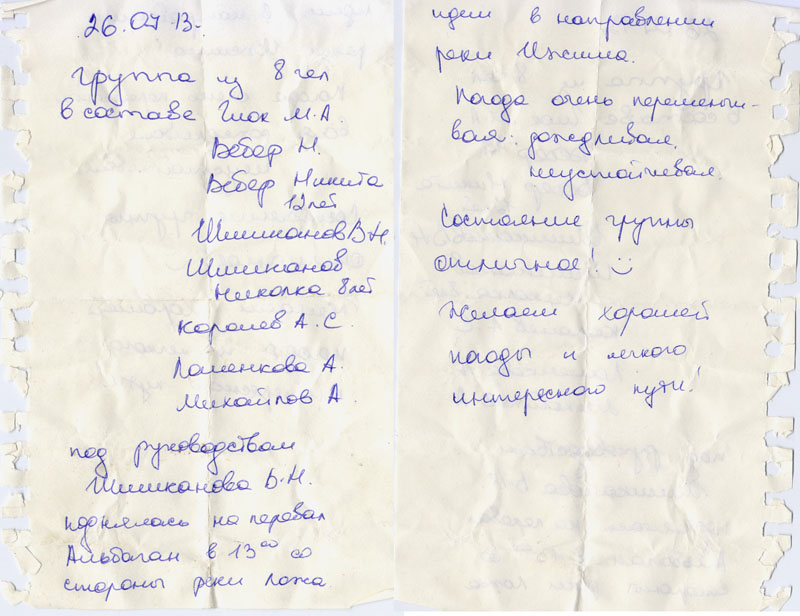 26.07.13.
Группа из 8 чел
в составе Гиок М.А.
Вебер Н.
Вебер Никита
12 лет
Шишканов В.Н.
Шишканов
Николка 8 лет
Королев А.С.
Паменкова А.
Михайлов А.
под руководством
Шишканова В.Н.
поднялась на перевал
Альбаган в 13⁰⁰ со
стороны реки Ложа.
идем в направлении
реки Ижима.
Погода очень переменчи-
вая: дождливая,
неустойчивая.
Состояние группы
отличное! :)
Желаем хорошей
погоды и легкого
интересного пути!